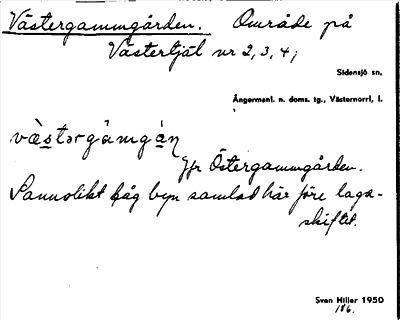 Västergammgården. Område på
Västertjäl nr 2, 3, 4;
Sidensjö sn,
Ångermanl. n. doms. tg., Västernorrl, l.
væ̀stərgàmgàn
Jfr Östergammgården.
Sannolikt låg byn samlad här före laga-
skiftet.
Sven Hiller 1950
186.